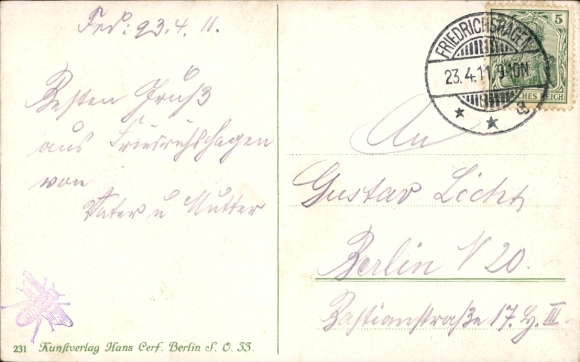 Frd: 23.4.11.
Besten Gruß
aus Friedrichshagen
von
Vater u Mutter
231 Kunstverlag Hans Cerf. Berlin S. O. 33.
FRIEDRICHSHAGEN
23.4.11. 9-10N
5
DEUTSCHES REICH
An
Gustav Licht,
Berlin N 20.
Bastianstraße 17. H. III